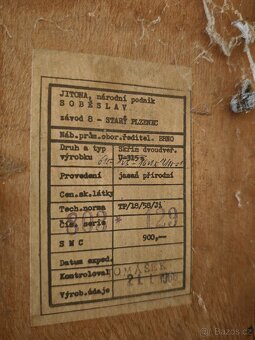 JITONA, národní podnik
SOBĚSLAV
závod 8 - STARÝ PLZENEC
Náb.prům.obor.ředitel. BRNO
Druh a typ Skříň dvoudveř.
výrobku U-315
Provedení jasan přírodní
Cen.sk.látky
Tech.norma TP/18/58/71
Čís. serie 129
S M C 900,--
Datum exped.
Kontroloval TOMÁŠEK
Výrob.údaje